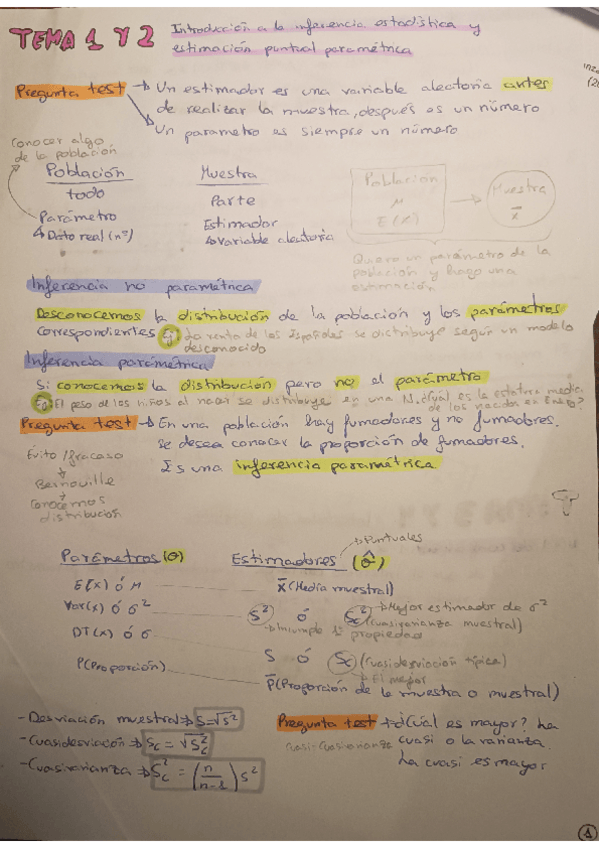 TEMA 1 Y 2
Introducción a la inferencia estadística y
estimación puntual paramétrica
Pregunta test → Un estimador es una variable aleatoria antes
de realizar la muestra, después es un número
Un parametro es siempre un número
Conocer algo
de la población
Población
todo
Parámetro
↳ Dato real (nº)
Muestra
Parte
Estimador
↳ variable aleatoria
Población
μ
E(X)
Muestra
x̄
Quiero un parámetro de la
población y hago una
estimación
Inferencia no paramétrica
Desconocemos la distribución de la población y los parámetros
correspondientes Ej: La renta de los Españoles se distribuye según un modelo
desconocido
Inferencia paramétrica
Si conocemos la distribución pero no el parámetro
Ej: El peso de los niños al nacer se distribuye en una N. ¿Cuál es la estatura media
de los nacidos en
Pregunta test → En una población hay fumadores y no fumadores.
se desea conocer la proporción de fumadores.
Es una inferencia paramétrica
Éxito/fracaso
↓
Bernouille
↓
Conocemos
distribución
→ Puntuales
Parámetros (θ)
Estimadores (θ̂)
E(x) ó μ
x̄ (Media muestral)
Var(x) ó σ²
S² ó Sc² (cuasivarianza muestral)
→ Mejor estimador de σ²
→ Incumple 1ª propiedad
DT(x) ó σ
S ó Sc (cuasidesviación típica)
→ El mejor
P(Proporción)
p̄ (Proporción de la muestra o muestral)
- Desviación muestral → S = √S²
- Cuasidesviación → Sc = √Sc²
- Cuasivarianza → Sc² = (n/n-1) S²
Pregunta test → ¿Cuál es mayor? La
cuasi o la varianza.
La cuasi es mayor
1